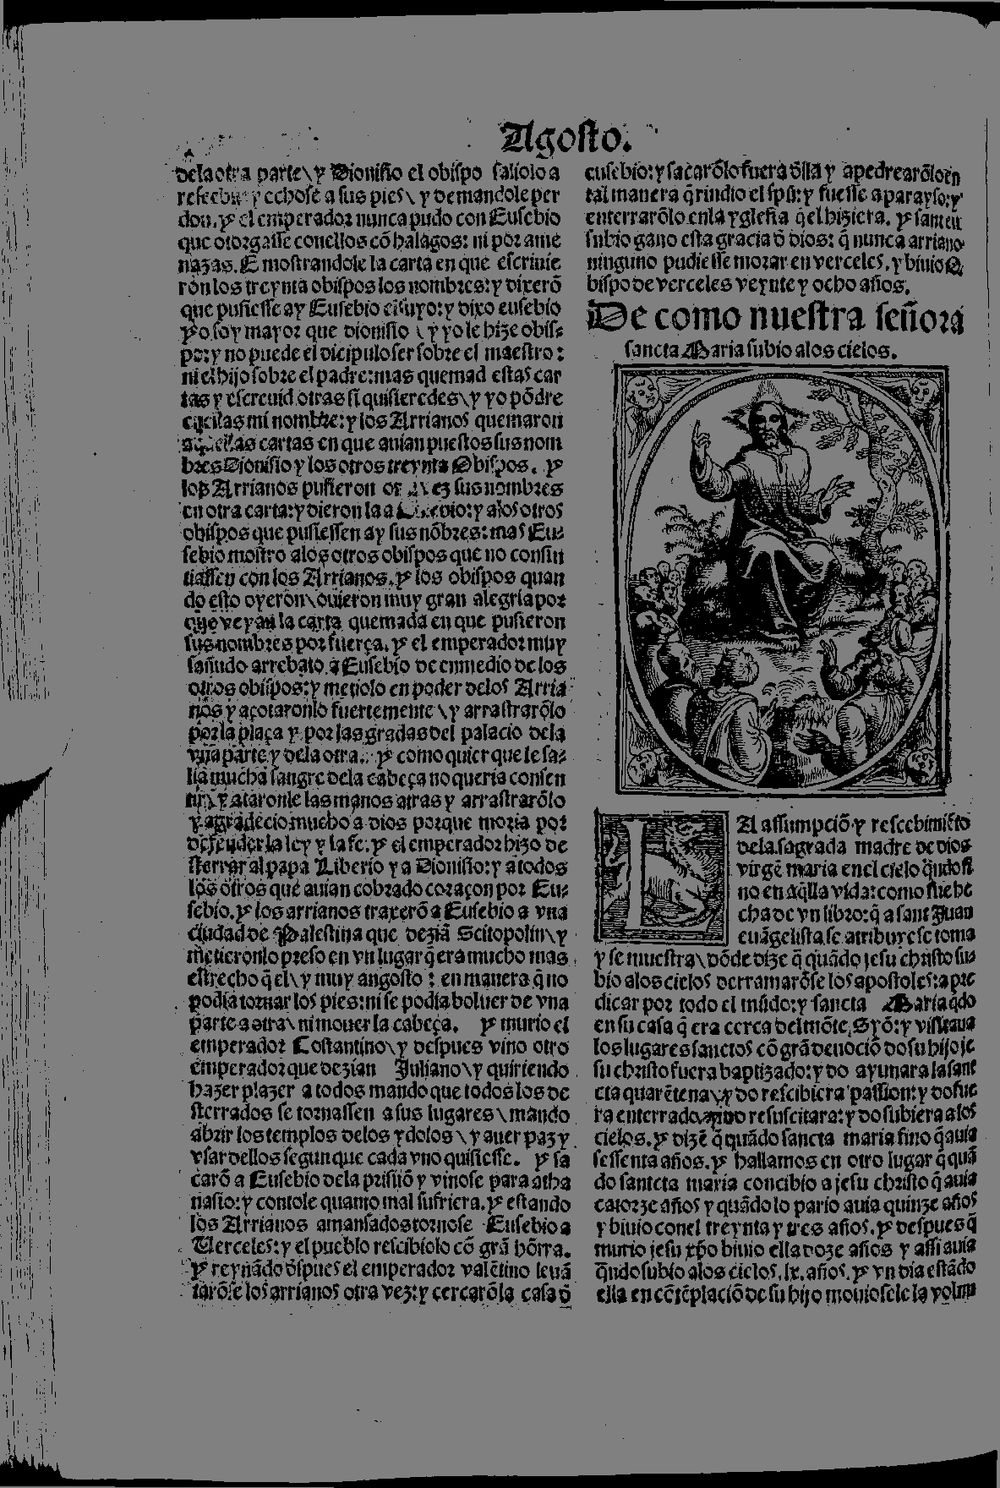 Agosto.
dela otra parte \ y Dionisio el obispo saliolo a
rescebir: y echose a sus pies \ y demandole per
don. y el emperador nunca pudo con Eusebio
que otorgasse conellos cõ halagos: ni por ame
nazas. E mostrandole la carta en que escriuie
rõn los treynta obispos los nombres: y dixerõ
que pusiesse ay Eusebio el suyo: y dixo eusebio
yo soy mayor que dionisio \ y yo le hize obis-
po: y no puede el dicipulo ser sobre el maestro:
ni el hijo sobre el padre: mas quemad estas car
tas y escreuid otras si quisieredes \ y yo põdre
en ellas mi nombre: y los Arrianos quemaron
aquellas cartas en que auian puestos sus nom
bres Dionisio y los otros treynta Obispos. y
los Arrianos pusieron otra vez sus nombres
en otra carta: y dieron la a Eusebio: y a los otros
obispos que pusiessen ay sus nõbres: mas Eu-
sebio mostro alos otros obispos que no consin
tiassen con los Arrianos. y los obispos quan
do esto oyeron \ ouieron muy gran alegria por
que veyan la carta quemada en que pusieron
sus nombres por fuerça. y el emperador muy
sañudo arrebato a Eusebio de enmedio de los
otros obispos: y metiolo en poder delos Arria
nos y açotaronlo fuertemente \ y arrastrarõlo
por la plaça y por las gradas del palacio dela
vna parte y dela otra. y como quier que le sa-
lia mucha sangre dela cabeça no queria consen
tir \ y ataronle las manos atras y arrastrarõlo
y agradecio mucho a dios porque moria por
defender la ley y la fe. y el emperador hizo de
sterrar al papa Liberio y a Dionisio: y a todos
los otros que auian cobrado coraçon por Eu-
sebio. y los arrianos traxerõ a Eusebio a vna
ciudad de Palestina que deziã Scitopolin \ y
metieronlo preso en vn lugar q̃ era mucho mas
estrecho q̃ el \ y muy angosto : en manera q̃ no
podia tornar los pies: ni se podia boluer de vna
parte a otra \ ni mouer la cabeça. y murio el
emperador Costantino \ y despues vino otro
emperador que dezian Juliano \ y quiriendo
hazer plazer a todos mando que todos los de
sterrados se tornassen a sus lugares \ mando
abrir los templos delos ydolos \ y auer paz y
vsar dellos segun que cada vno quisiesse. y sa
carõ a Eusebio dela prisiõ y vinose para atha
nasio: y contole quanto mal sufriera. y estando
los Arrianos amansados tornose Eusebio a
Uerceles: y el pueblo rescibiolo cõ grã hõrra.
y reynãdo d̃spues el emperador valẽtino leuã
tarõse los arrianos otra vez: y cercarõ la casa d̃
eusebio: y sacarõlo fuera d̃lla y apedrearõlo en
tal manera q̃ rindio el sp̃s: y fuesse a parayso: y
enterrarõlo enla yglesia q̃ el hiziera. y sant eu
sebio gano esta gracia d̃ dios: q̃ nunca arriano
ninguno pudiesse morar en verceles. y biuio O
bispo de verceles veynte y ocho años.
De como nuestra señora
sancta Maria subio alos cielos.
LA assumpciõ y rescebimiẽto
dela sagrada madre de dios
virgẽ maria en el cielo q̃ndo fi
no en aq̃lla vida: como fue he
cha de vn libro: q̃ a sant Juan
euãgelista se atribuye se toma
y se muestra \ dõde dize q̃ quãdo jesu christo su-
bio alos cielos derramarõse los apostoles: a pre
dicar por todo el mũdo: y sancta Maria q̃do
en su casa q̃ era cerca del mõte Syõ: y visitaua
los lugares sanctos cõ grã deuociõ do su hijo je
su christo fuera baptizado: y do ayunara la sant
cta quarẽtena \ y do rescibiera passion: y do fue
ra enterrado \ y do resuscitara: y do subiera alos
cielos. y dizẽ q̃ quãdo sancta maria fino q̃ auia
sessenta años. y hallamos en otro lugar q̃ quã
do santcta maria concibio a jesu christo q̃ auia
catorze años y quãdo lo pario auia quinze años
y biuio con el treynta y tres años. y despues q̃
murio jesu xp̃o biuio ella doze años y assi auia
q̃ndo subio alos cielos. lx. años. y vn dia estãdo
ella en cõtẽplaciõ de su hijo mouiosele la volun